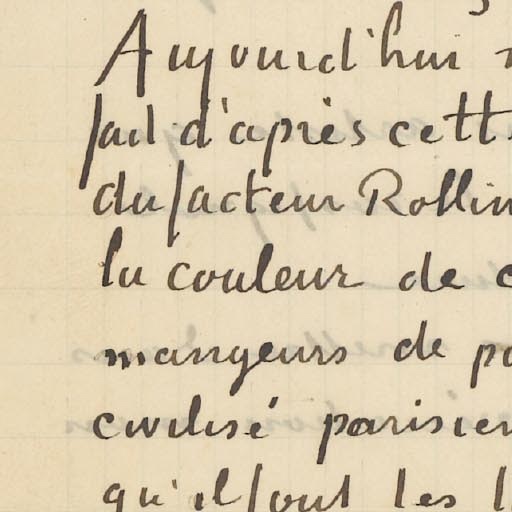 Aujourd'hui
fait d'après cett
du facteur Rollin
lu couleur de c
mangeurs de po
civilisé parisien
qu'il faut les l